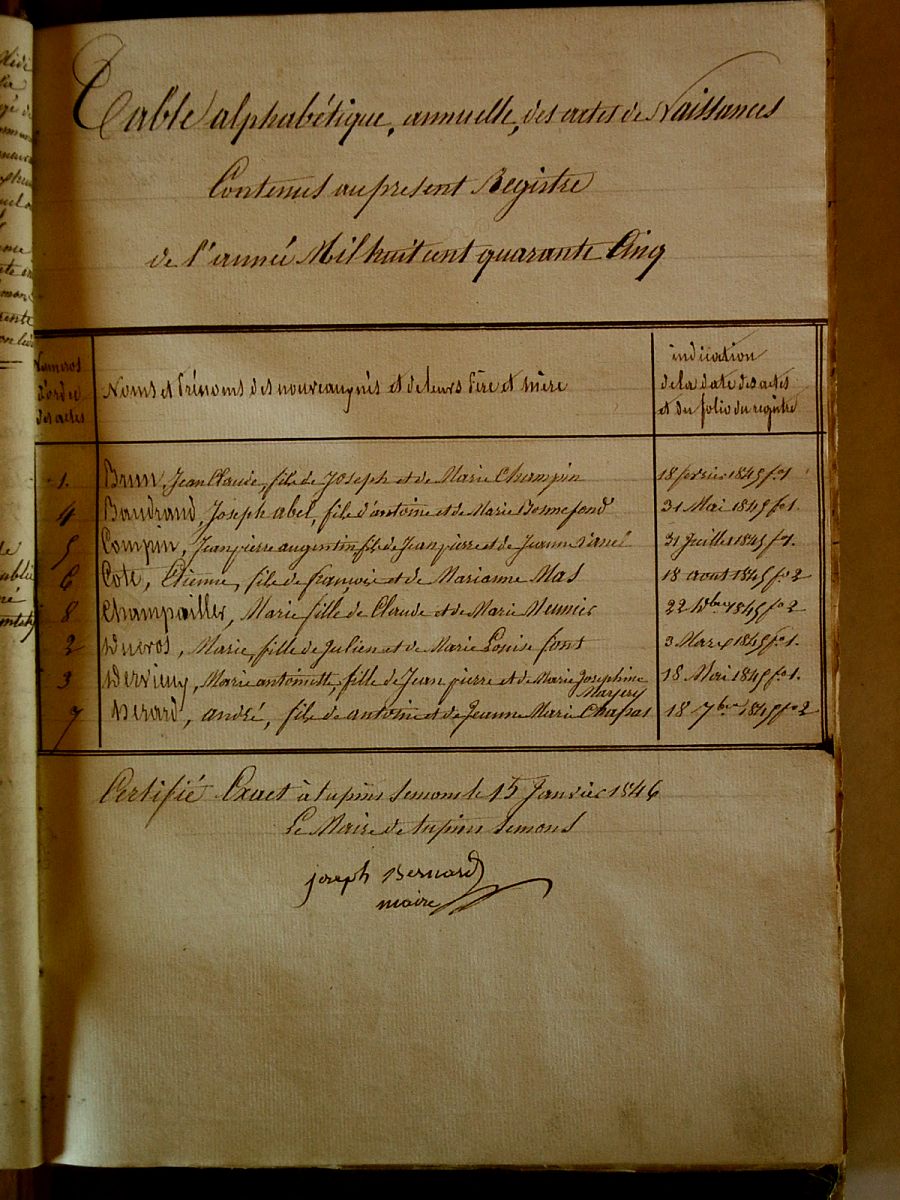 Table alphabétique, annuelle, des actes de Naissances
Contenus au present Registre
de l'année Mil huit cent quarante Cinq
Numeros
d'ordre
des actes
Noms et Prénoms des nouveaux nés et de leurs Père et mère
indication
de la date des actes
et du folio du registre
1. Brun, Jean Claude, fils de Joseph et de Marie Champin 18 fevrier 1845 fo 1
4 Baudrand, Joseph abel, fils d'antoine et de Marie Bonnefond 31 Mai 1845 fo 1.
5 Compin, Jean pierre augustin fils de Jean pierre et de Jeanne 31 Juillet 1845 fo 1.
6 Cote, Etienne, fils de françois et de Marianne Mas 18 aout 1845 fo 2
8 Champailler, Marie fille de Claude et de Marie Meunier 22 1845 fo 2
2 Ducros, Marie, fille de Julien et de Marie Louise font 3 Mars 1845 fo 1.
3 Dervieux, Marie antoinette, fille de Jean pierre et de Marie Josephine 18 Mai 1845 fo 1.
7 andré, fils de antoine et de Jeanne Marie 18 7bre 1845 fo 2
Certifié Exact à tupins Semons le 15 Janvier 1846
Le Maire de tupins Semons
joseph Bernard
maire